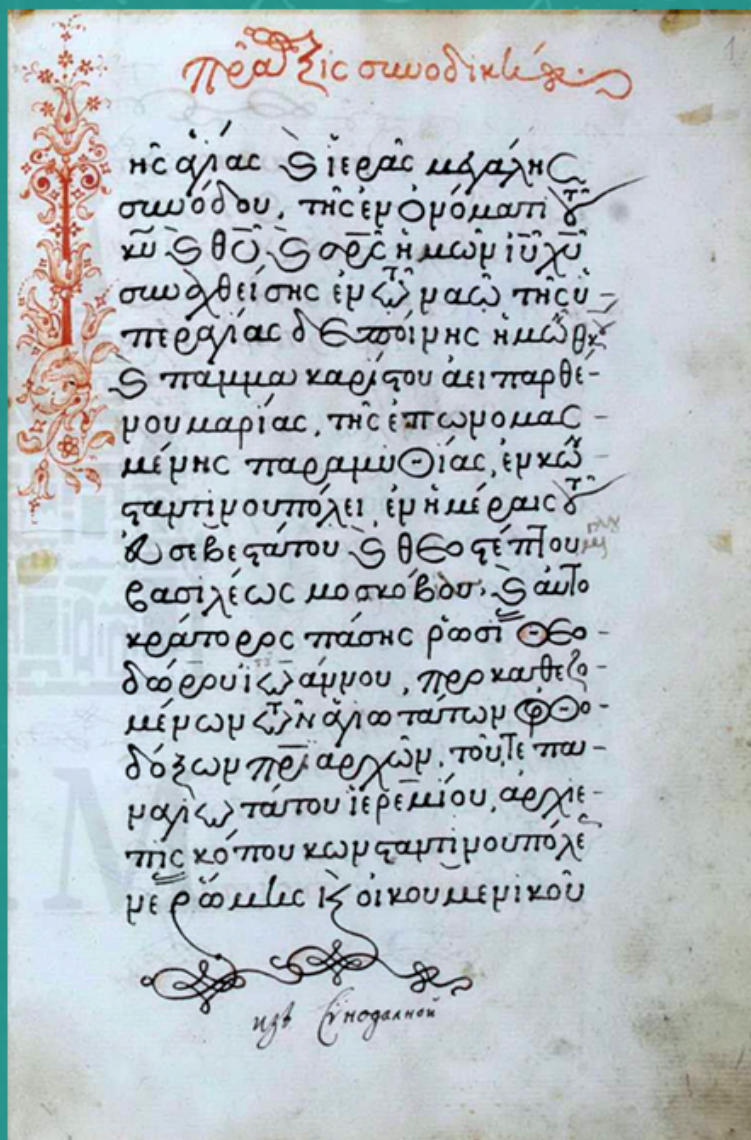 πρᾶξις συνοδική
1
ης ἁγίας κ ἱερᾶς μεγάλης
συνόδου, τῆς ἐν ὀνόματι τοῦ
κυ κ θυ κ σρς ἡμῶν ιυ χυ
συναχθείσης ἐν τῷ ναῷ τῆς ὑ-
περαγίας δεσποίνης ἡμῶν θκου
κ παμμακαρίστου ἀειπαρθέ-
νου μαρίας, τῆς ἐπωνομασ-
μένης παραμυθίας, ἐν κων-
σταντινουπόλει ἐν ἡμέραις τοῦ
εὐσεβεστάτου κ θεοστέπτου
βασιλέως μοσκόβου, κ αὐτο
κράτορος πάσης ῥωσί θεο-
δώρου ἰωάννου, προκαθεζο-
μένων τῶν ἁγιωτάτων ὀρθο-
δόξων πριαρχῶν, τοῦ τε πα-
ναγιωτάτου ἱερεμίου, ἀρχιε-
πισκόπου κωνσταντινουπόλε
νέ ῥώμης κ οἰκουμενικοῦ
изъ Синодалной